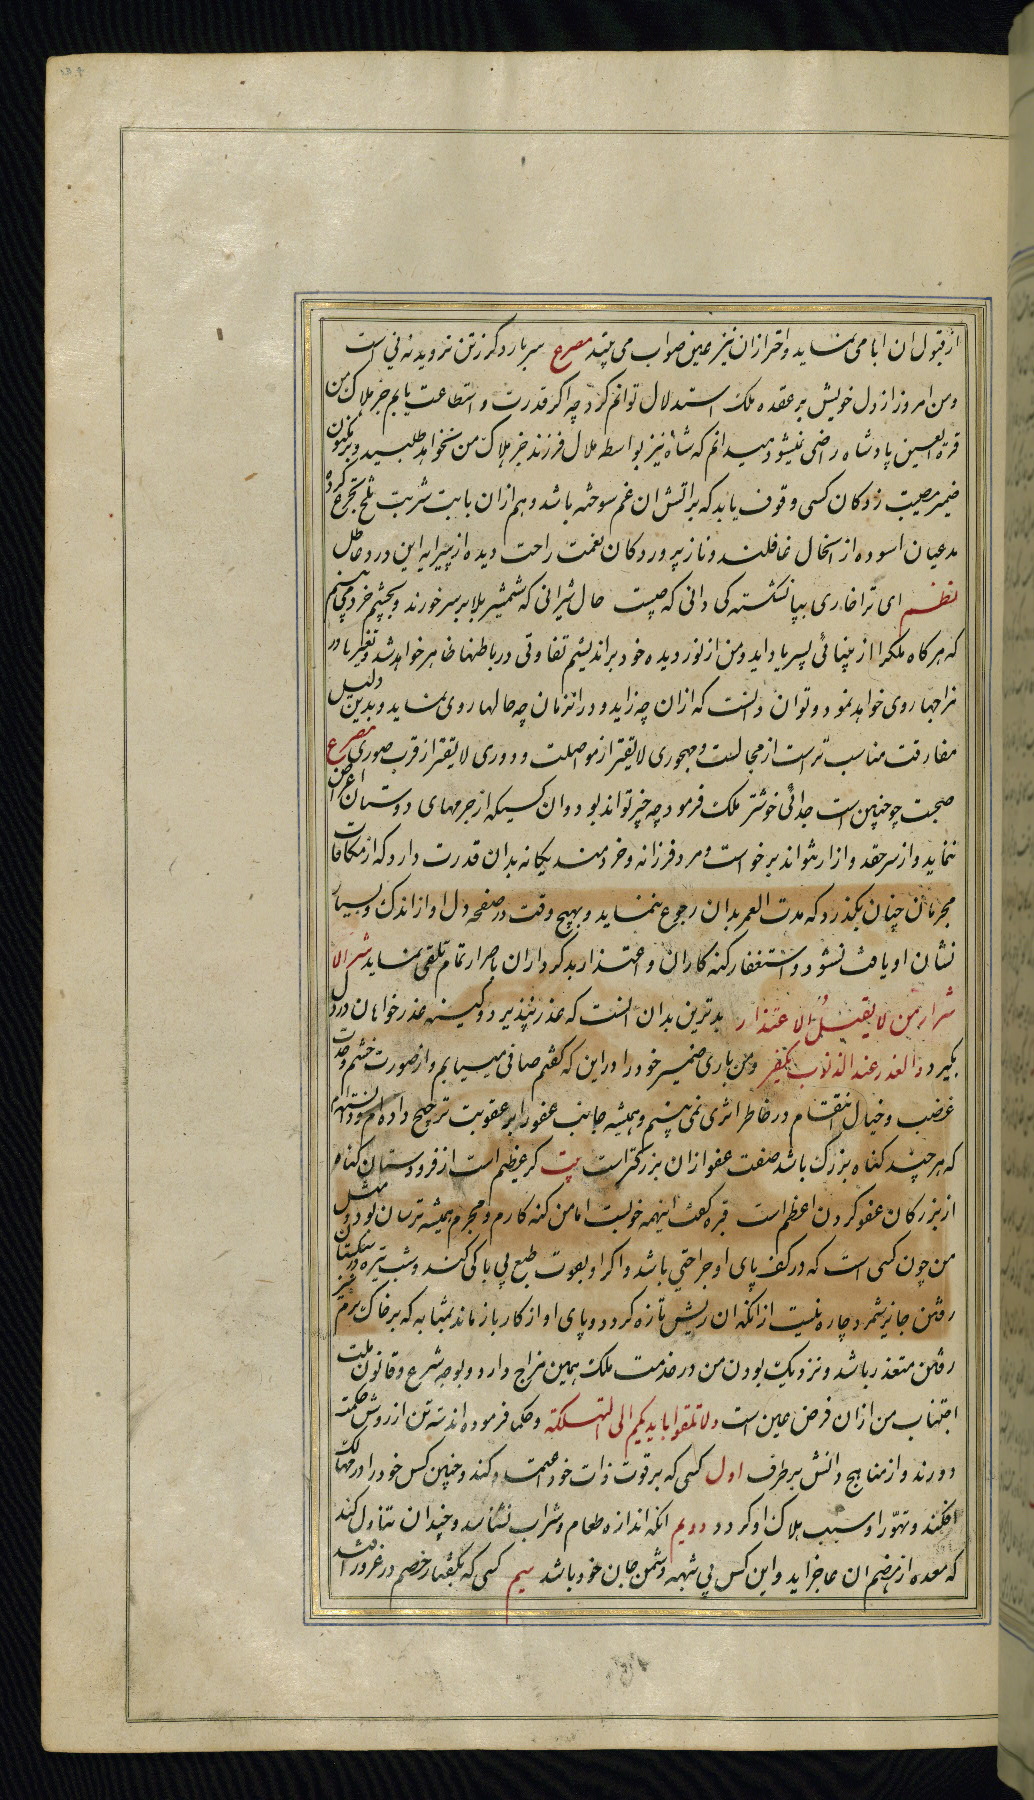 از قبول ان ابا می نماید و احتراز ان نیز عین صواب می بیند مصرع سر بار دکر زتن نروید نه نی است
و من امروز از دل خویش بر عقده ملک استدلال توانم کرد چه اکر قدرت و استطاعت یابم جز بهلاک من
قرة العین پادشاه راضی نمیشود و میدانم که شاه نیز بواسطه ملال فرزند جز هلاک من نخواهد طلبید و بر مکنون
ضمیر مصیبت زدکان کسی وقوف یابد که بر اتش ان غم سوخته باشد و هم از ان بابت شربت تلخ تجرع کرده
مدعیان اسوده از اینحال غافلند و ناز پروردکان نعمت راحت دیده از پیرایه این درد عاطل
نظم ای ترا خاری بپا نشکسته کی دانی که چیست حال شیرانی که شمشیر بلا بر سر خورند و بچشم خرد می بینم
که هر کاه ملکرا از بینائی پسر یاد اید و من از نور دیده خود براندیشم تفاوتی در باطنها ظاهر خواهد شد و تغیر در
مزاجها روی خواهد نمود و توان دانست که ازان چه زاید و در انزمان چه حالها روی نماید و بدین دلیل
مفارقت مناسب تر است از مجالست و مهجوری لایقتر از مواصلت و دوری لایقتر از قرب صوری مصرع
صحبت چو چنین است جدائی خوشتر ملک فرمود چه خیر تواند بود دران کسیکه از جرمهای دوستان اعراض
ننماید و از سر حقد و ازار نتواند برخواست و مرد فرزانه و خردمند یکانه بدان قدرت دارد که از مکافات
مجرمان چنان بکذرد که مدت العمر بدان رجوع ننماید و بهیچ وقت در صفحه دل او از اندک و بسیار
نشان او یافت نشود و استغفار کنه کاران و اعتذار بد کرداران باصرار تمام تلقی نماید شر الا
شرار من لا یقبل الاعتذار بدترین بدان انست که عذر نپذیرد و کینه عذر خواهان در دل
بکیرد و العذر عند الذنوب یکفیر و من باری ضمیر خود را در این که کفتم صافی مییابم و از صورت خشم و حدت
غضب و خیال انتقام در خاطر اثری نمی بینم و همیشه جانب عفو را بر عقوبت ترجیح داده ام و دانسته ام
که هر چند کناه بزرک باشد صفت عفو ازان بزرکتر است بیت کر عظیم است از فرودستان کناه
از بزرکان عفو کردن اعظم است قبره کفت اینهمه خوبست اما من کنه کارم و مجرم همیشه ترسان بود و مثل
من چون کسی است که در کف پای او جراحتی باشد و اکر او بقوت طبع بی باکی کند و شب تیره در سنکستان
رفتن جایز شمرد چاره نیست از انکه ان ریش تازه کردد و پای او از کار باز ماند بمثابه که بر خاک نرم نیز
رفتن متعذر باشد و نزدیک بودن من در خدمت ملک همین مزاج دارد و بوجه شرع و قانون ملت
اجتناب من ازان فرض عین است ولا تلقوا بایدیکم الی التهلکة و حکما فرموده اند سه تن از روش حکمت
دورند و از مناهج دانش بر طرف اول کسی که بر قوت ذات خود اعتماد کند و چنین کس خود را در مهالک
افکند و تهور او سبب هلاک او کردد دویم انکه اندازه طعام و شراب نشناسد و چندان تناول کند
که معده از هضم ان عاجز اید و این کس بی شبهه دشمن جان خود باشد سیم کسی که بکفتار خصم در غرور افتد